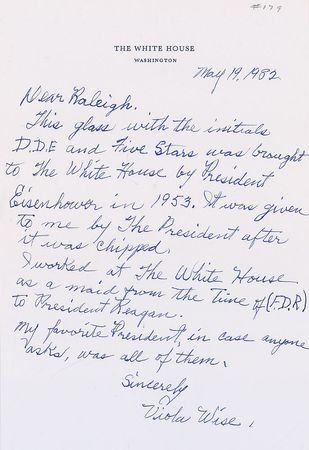 #179
THE WHITE HOUSE
WASHINGTON
May 19, 1982
Dear Raleigh.
This glass with the initials
D.D.E and Five Stars was brought
to The White House by President
Eisenhower in 1953. It was given
to me by The President after
it was chipped.
I worked at The White House
as a maid from the time of (F.D.R)
to President Reagan.
My favorite President, in case anyone
asks, was all of them.
Sincerely
Viola Wise.